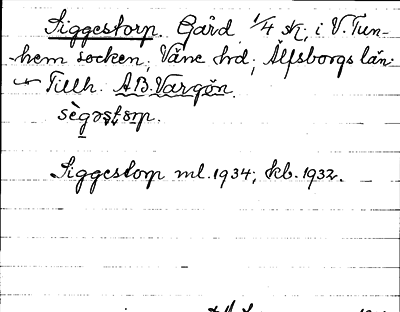 Siggestorp. Gård 1/4 sk, i V. Tun-
hem socken; Väne hd; Älfsborgs län.
Tillh. A.B. Vargön.
sègəstɔrp.
Siggestorp ml. 1934; kb. 1932.